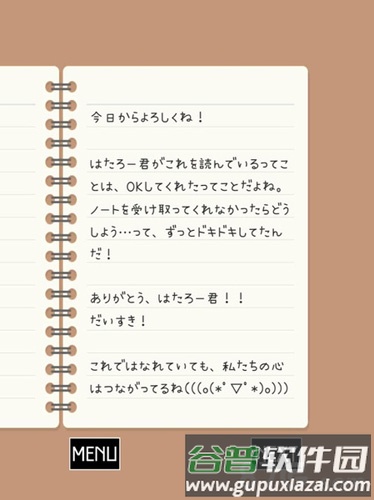 今日からよろしくね！
はたろー君がこれを読んでいるってこ
とは、OKしてくれたってことだよね。
ノートを受け取ってくれなかったらどう
しよう…って、ずっとドキドキしてたん
だ！
ありがとう、はたろー君！！
だいすき！
これではなれていても、私たちの心
はつながってるね(((o(*ﾟ▽ﾟ*)o)))
MENU
谷普软件园
www.gupuxlazal.com